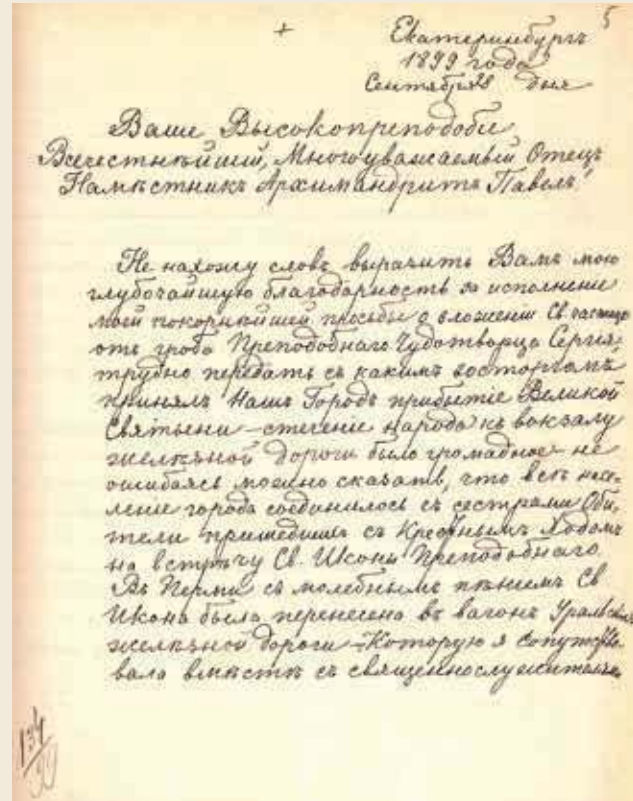 5
+
Екатеринбургъ
1899 года
Сентября 28 дня
Ваше Высокопреподобіе
Всечестнѣйшій, Многоуважаемый Отецъ
Намѣстникъ Архимандритъ Павелъ!
Не нахожу словъ выразить Вамъ мою
глубочайшую благодарность за исполненіе
моей покорнѣйшей просьбы о вложеніи Св частицы
отъ гроба Преподобнаго Чудотворца Сергія-
трудно передать съ какимъ восторгомъ
принялъ Нашъ Городъ прибытіе Великой
Святыни - стеченіе народа къ вокзалу
желѣзной дороги было громадное - не
ошибаясь можно сказать, что всѣ насе-
леніе города соединилось съ сестрами Оби-
тели пришедшими съ Крестнымъ Ходомъ
на встрѣчу Св. Иконы Преподобнаго.
Въ Перми съ молебнымъ пѣніемъ Св
Икона была перенесена въ вагонъ Уральской
желѣзной дороги - Которую я сопутство-
вала вмѣстѣ съ священнослужителемъ
134
99